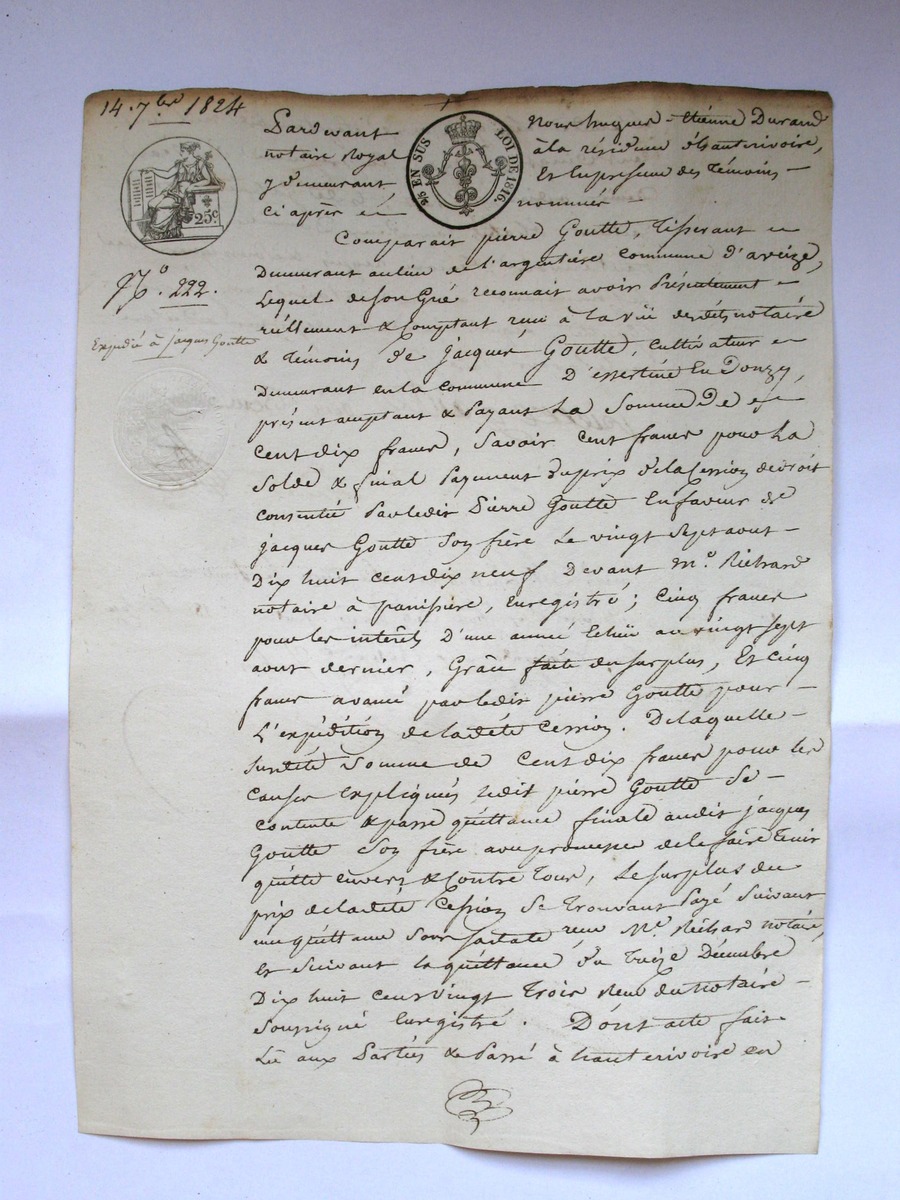 14. 7bre 1824
25c
N° 222.
Expédié à jacques Goutte
25 EN SUS LOI DE 1816.
Pardevant Nous hugues-étienne Durand
notaire Royal à la résidence d'hauterivoire,
y demeurant Et En présence des Témoins -
ci après nommés
Comparait pierre Goutte, Tisserant
Demeurant au lieu de l'argentière commune d'aveize,
Lequel de son Gré reconnait avoir Présentement
réellement & Comptant reçu à la vüe desdts notaire
& Témoins de jacques Goutte, cultivateur
Demeurant en la commune D'essertine En Donzy,
présent acceptant & Payant La Somme De
Cent dix francs, Savoir Cent francs pour La
Solde & final Payement du prix de la Cession de droit
Consentie Par ledit Pierre Goutte En faveur de
jacques Goutte Son frère Le vingt Sept aout -
Dix huit cent dix neuf Devant Me. Richard
notaire à panissière, Enregistré; Cinq francs
pour les intérêts D'une année Echüe au vingt Sept
aout dernier, Grâce faite du surplus, Et Cinq
francs avancé par ledit pierre Goutte pour -
L'expédition de ladte Cession. De laquelle -
Susdite Somme de Cent dix francs pour les
Causes Expliqués ledit pierre Goutte Se -
contente & passe quittance finale audit jacques
Goutte Son frère avec promesse de le faire Tenir
quitte envers & Contre Tous, Le Surplus du
prix de ladte Cession Se Trouvant Payé Suivant
une quittance Sous sa date reçu Me. Richard notaire,
Et Suivant la quittance du Treize Décembre
Dix huit cent vingt Trois Reçu du notaire -
Soussigné Enregistré. Dont acte fait
Lü aux Parties & Passé à hauterivoire En